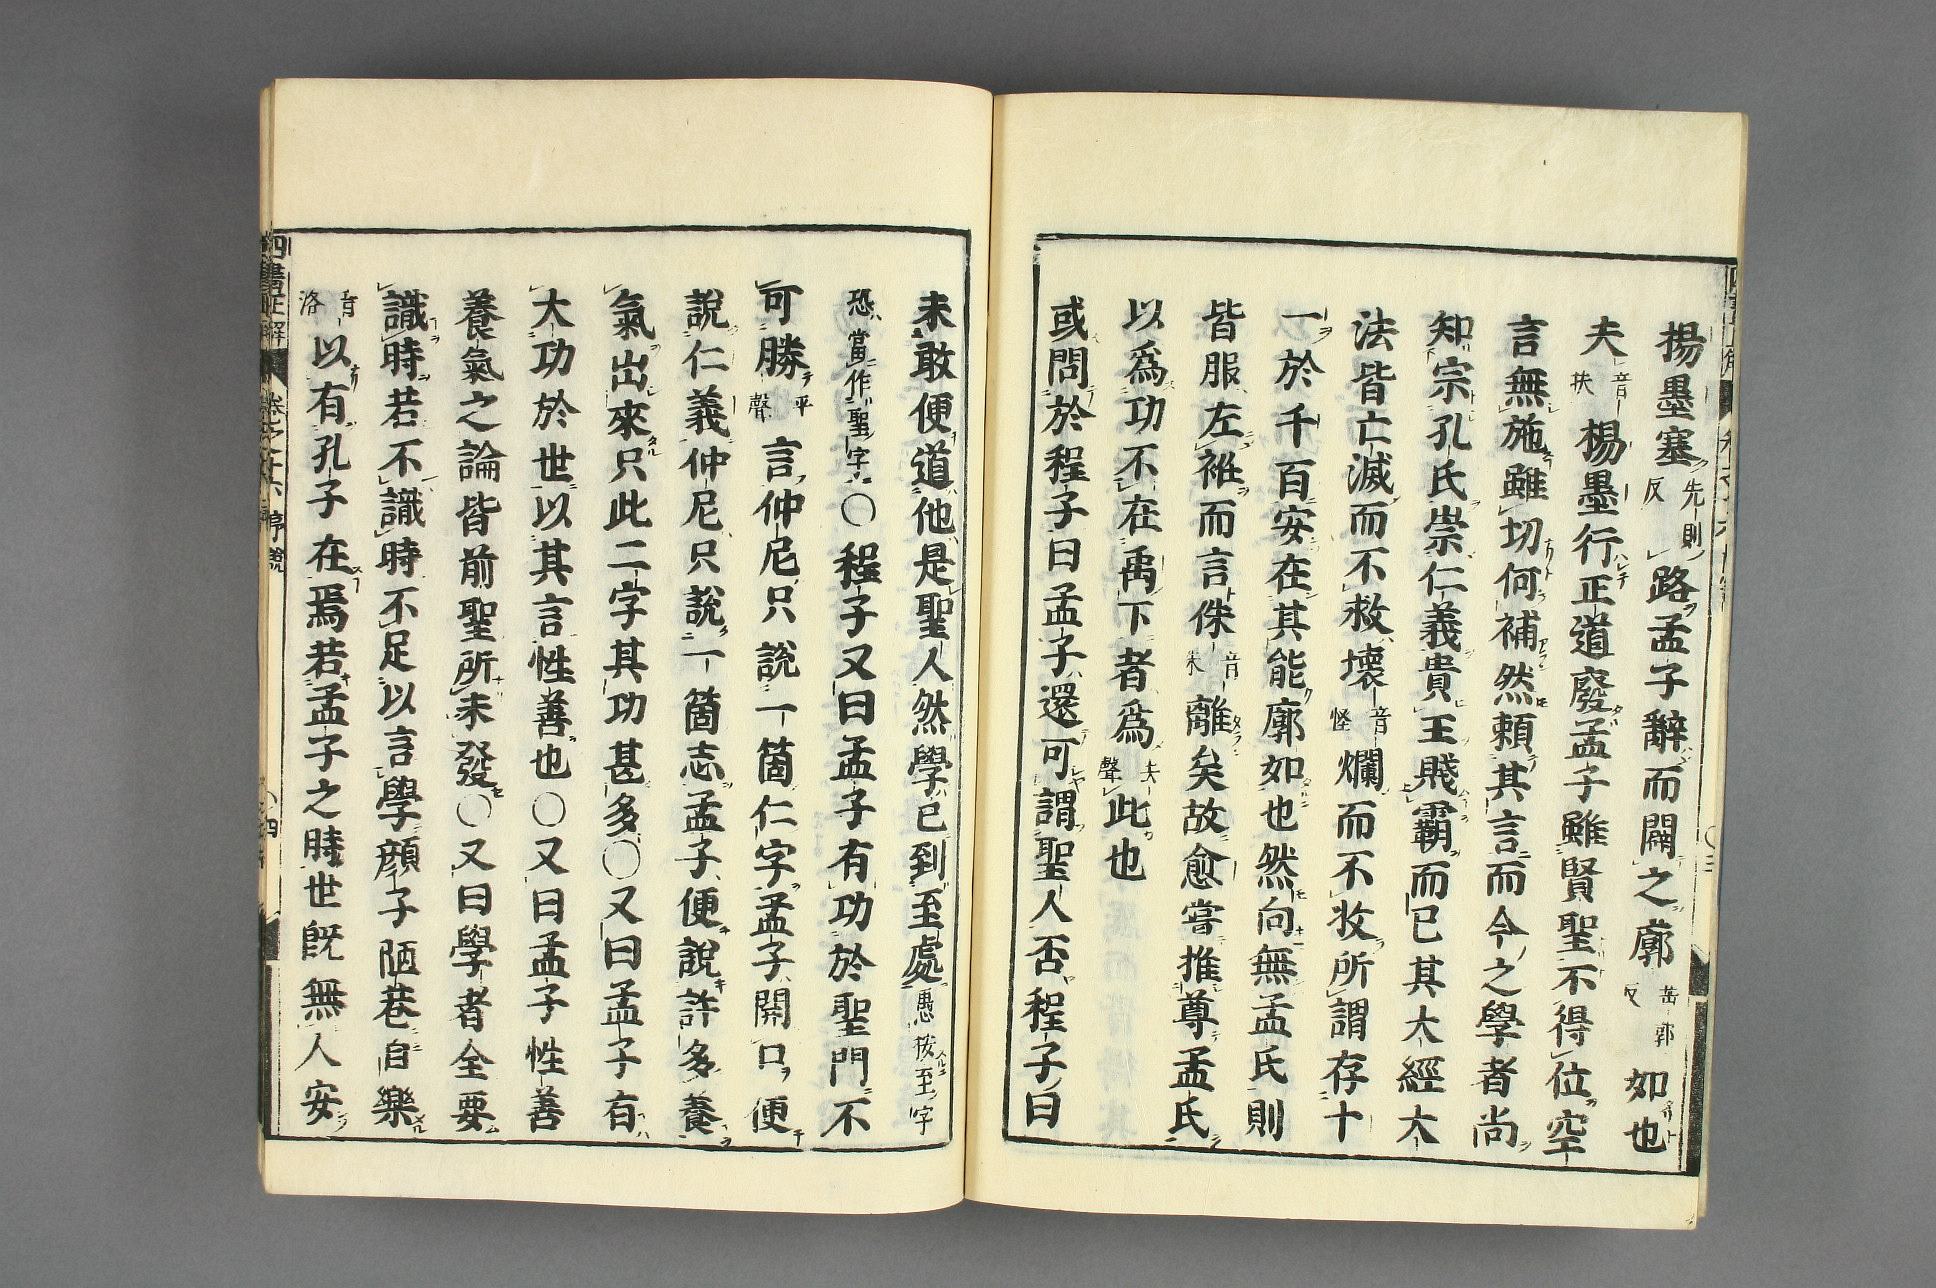 揚墨塞先則反路孟子辭而闢之廓苦郭反如也
夫音扶楊墨行正道廢孟子雖賢聖不得位空
言無施雖切何補然賴其言而今之學者尚
知宗孔氏崇仁義貴王賤霸而已其大經大
法皆亡滅而不救壞音怪爛而不收所謂存十
一於千百安在其能廓如也然向無孟氏則
皆服左衽而言侏音朱離矣故愈嘗推尊孟氏
以爲功不在禹下者爲去聲此也
或問於程子曰孟子還可謂聖人否程子曰
未敢便道他是聖人然學已到至處愚按至字
恐當作聖字○程子又曰孟子有功於聖門不
可勝平聲言仲尼只說一箇仁字孟子開口便
說仁義仲尼只說一箇志孟子便說許多養
氣出來只此二字其功甚多○又曰孟子有
大功於世以其言性善也○又曰孟子性善
養氣之論皆前聖所未發○又曰學者全要
識時若不識時不足以言學顏子陋巷自樂
音洛以有孔子在焉若孟子之時世旣無人安
四書正解 卷之十六 序說 四